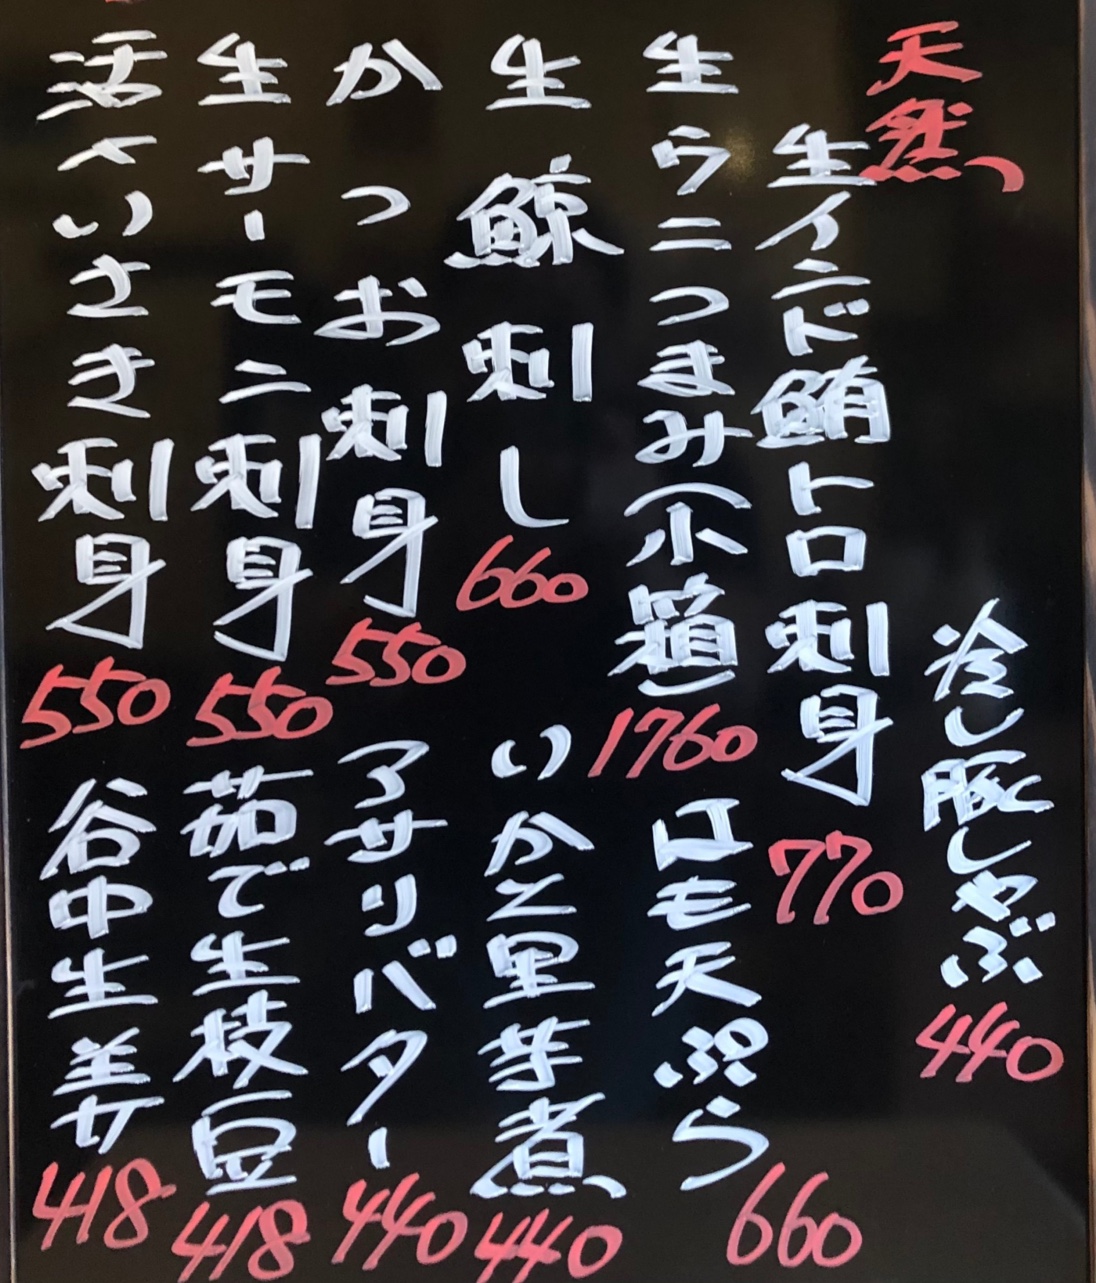 冷し豚しゃぶ 440
天然
生インド鮪トロ刺身 770
生ウニつまみ(小箱) 1760
はも天ぷら 660
生鯨刺し 660
いかと里芋煮 440
かつお刺身 550
アサリバター 440
生サーモン刺身 550
茹で生枝豆 418
活〆いさき刺身 550
谷中生姜 418